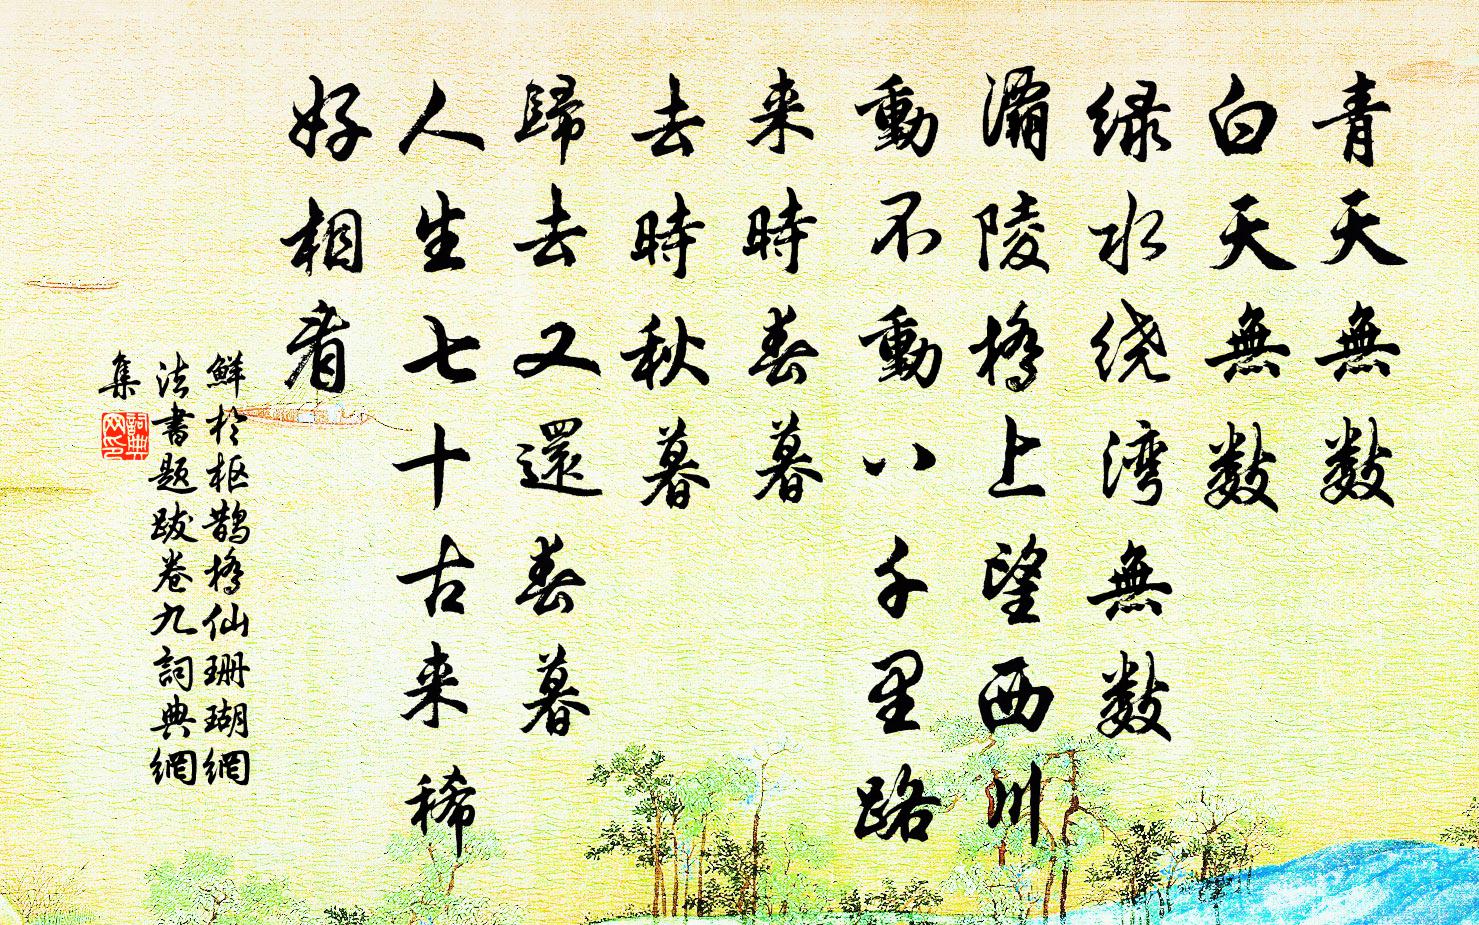 青天無数
白天無数
绿水绕湾無数
灞陵橋上望西川
動不動八千里路
来時春暮
去時秋暮
歸去又還春暮
人生七十古来稀
好相看
鮮於枢鵲橋仙珊瑚網
法書题跋卷九詞典網
集
詞典网印